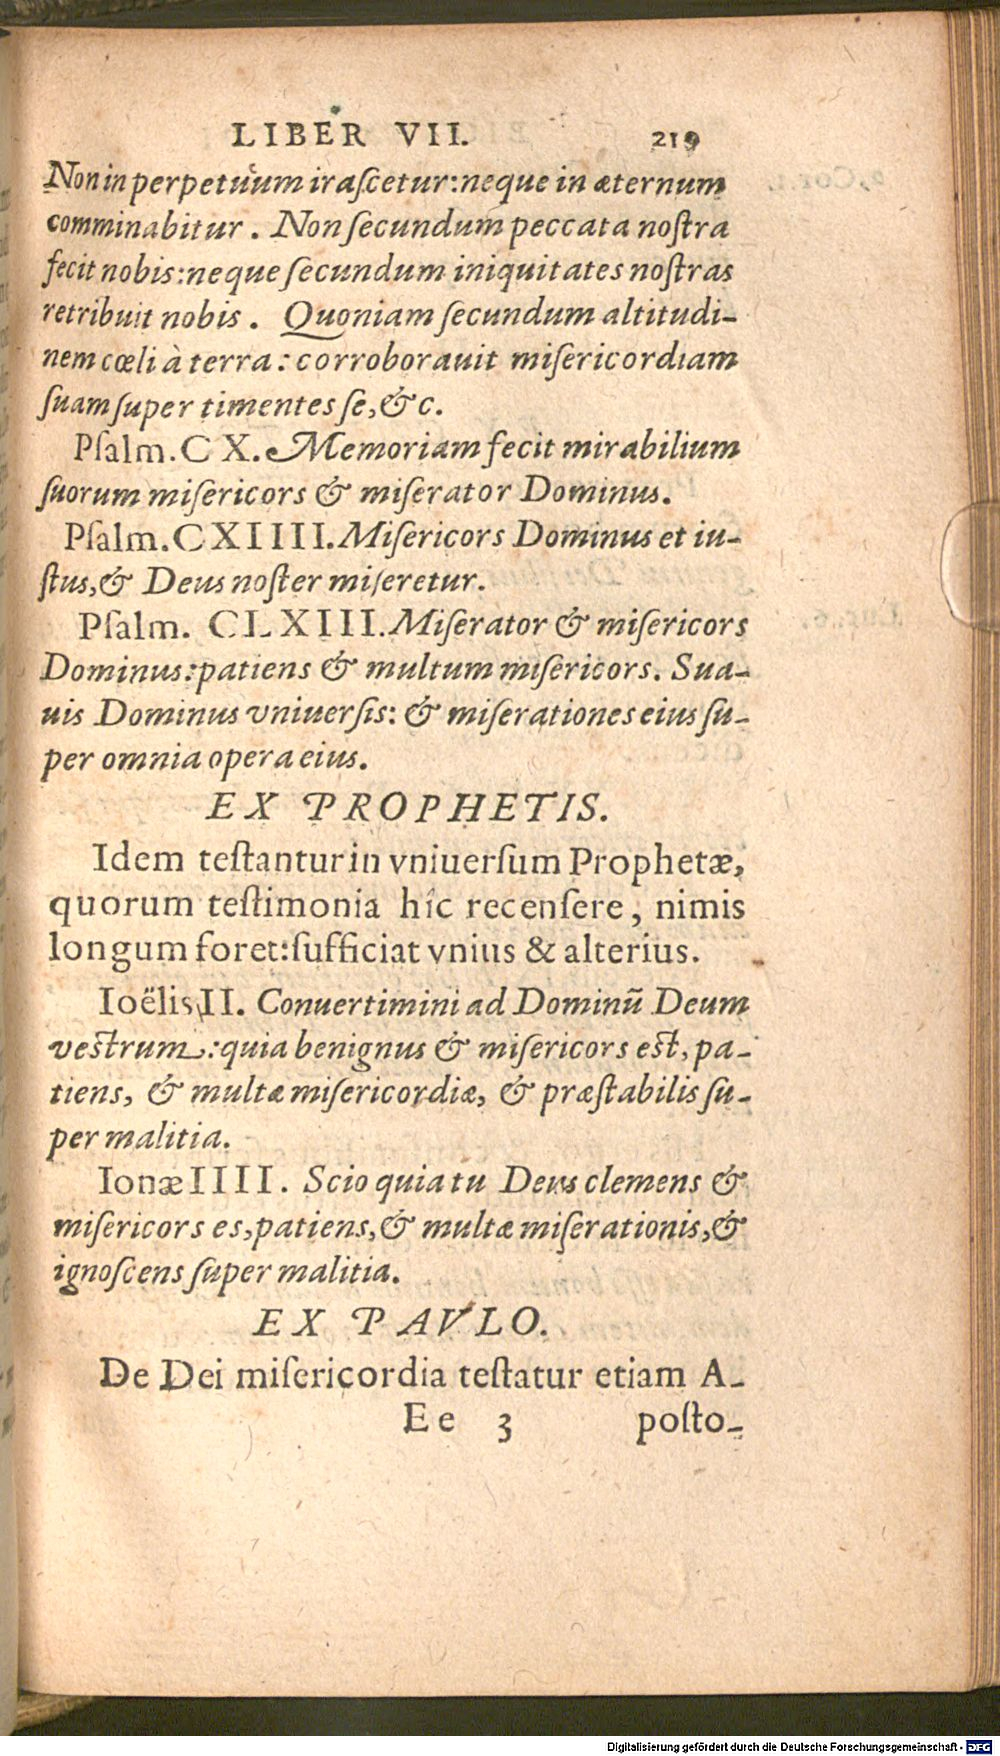 LIBER VII. 219
Non in perpetuum iraſcetur: neque in æternum
comminabitur. Non ſecundum peccata noſtra
fecit nobis: neque ſecundum iniquitates noſtras
retribuit nobis. Quoniam ſecundum altitudi-
nem cœli à terra: corroborauit miſericordiam
ſuam ſuper timentes ſe, &c.
Pſalm. CX. Memoriam fecit mirabilium
ſuorum miſericors & miſerator Dominus.
Pſalm. CXIIII. Miſericors Dominus et iu-
ſtus, & Deus noſter miſeretur.
Pſalm. CLXIII. Miſerator & miſericors
Dominus: patiens & multum miſericors. Sua-
uis Dominus vniuerſis: & miſerationes eius ſu-
per omnia opera eius.
EX PROPHETIS.
Idem teſtantur in vniuerſum Prophetæ,
quorum teſtimonia hîc recenſere, nimis
longum foret: ſufficiat vnius & alterius.
Ioëlis II. Conuertimini ad Dominū Deum
vestrum: quia benignus & miſericors est, pa-
tiens, & multæ miſericordiæ, & præſtabilis ſu-
per malitia.
Ionæ IIII. Scio quia tu Deus clemens &
miſericors es, patiens, & multæ miſerationis, &
ignoſcens ſuper malitia.
EX PAVLO.
De Dei miſericordia teſtatur etiam A-
Ee 3 poſto-
Digitalisierung gefördert durch die Deutsche Forschungsgemeinschaft - DFG